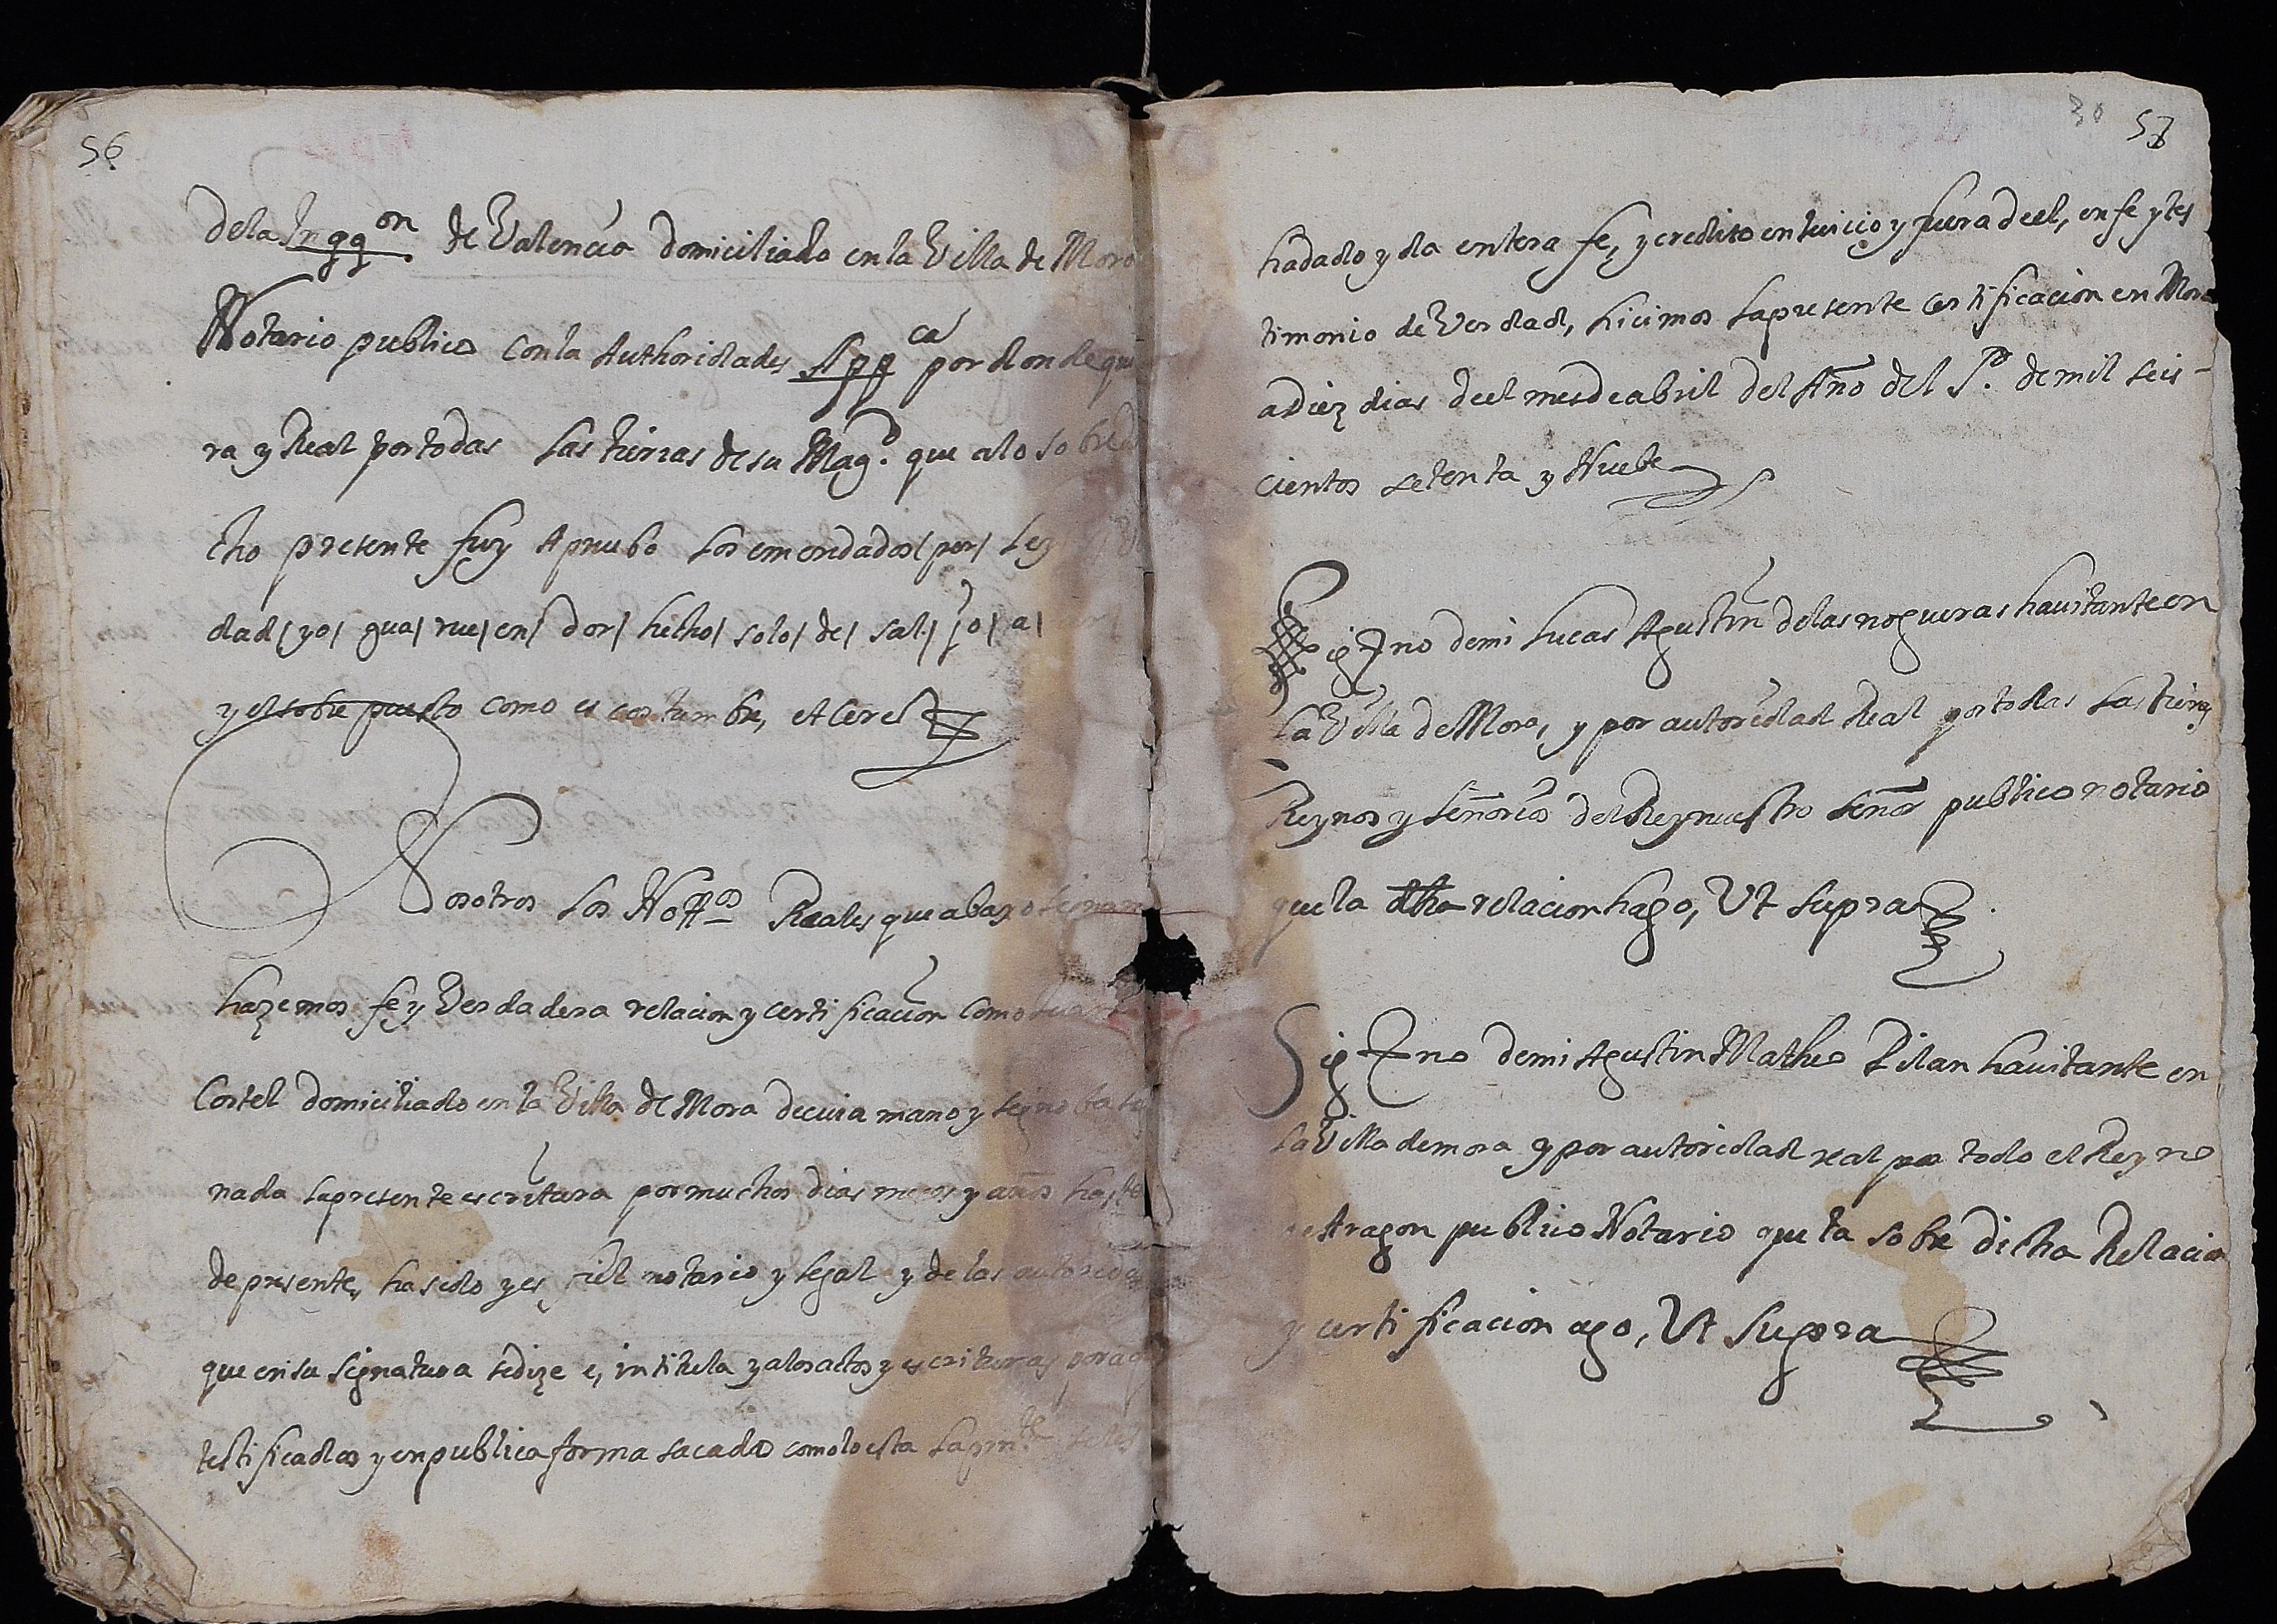 56
dela Inqq.on de Valencia domiciliado en la Villa de Mora
Notario publico con la Authoridades App ca por donde qui
ra y Real por todas las tierras de su Mag.d que a lo sobredi
cho presente fuy Apruebo los emendados/ per/ ley
dad/ yo/ gua/ rue/ en/ dor/ hecho/ solo/ de/ sal/ jo/ a/
y el sobre puesto como es costumbre, et cerre
Nosotros los Nott.os Reales que abaxo signare
hazemos fe y Verdadera relacion y certificacion como
Costel domiciliado en la Villa de Mora de cuia mano y signo
nada la presente escritura por muchos dias meses y años haste
de presente, ha sido y es, fiel notario y legal y de las autorida
que en su signatura se dize e, intitula y a los actos y escrituras por
testificados y en publica forma sacado como lo esta la pnt.te
30 57
ha dado y da entera fe, y credito en Juicio y fuera deel, en fe y tes
timonio de Verdad, hicimos la presente certificacion en Mora
a Diez dias deel mes de abril del Año del S.r de mil seis-
cientos setenta y Nuebe
Sig no de mi Lucas Agustin de las nogueras hauitante en
la Villa de Mora, y por autoridad Real por todas las tierras
Reynos y señorios del Rey nuestro señor publico notario
que la dha relacion hago, Ut supra
Sig no de mi Agustin Matheo Pilan hauitante en
la Villa de mora y por autoridad real por todo el Reyno
de Aragon publico Notario que la sobre dicha Relacion
y certificacion ago, Ut Supra